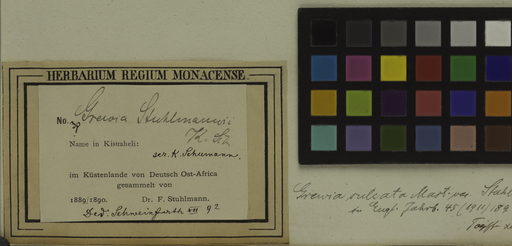 HERBARIUM REGIUM MONACENSE
No. Grewia Stuhlmannii
K. Sch
Name in Kisuaheli:
scr. K. Schumann.
im Küstenlande von Deutsch Ost-Africa
gesammelt von
1889/1890. Dr. F. Stuhlmann.
Ded. Schweinfurth VII 92
Grewia sulcata Mast. var. Stuhl
in Engl. Jahrb. 45 (1911) 189